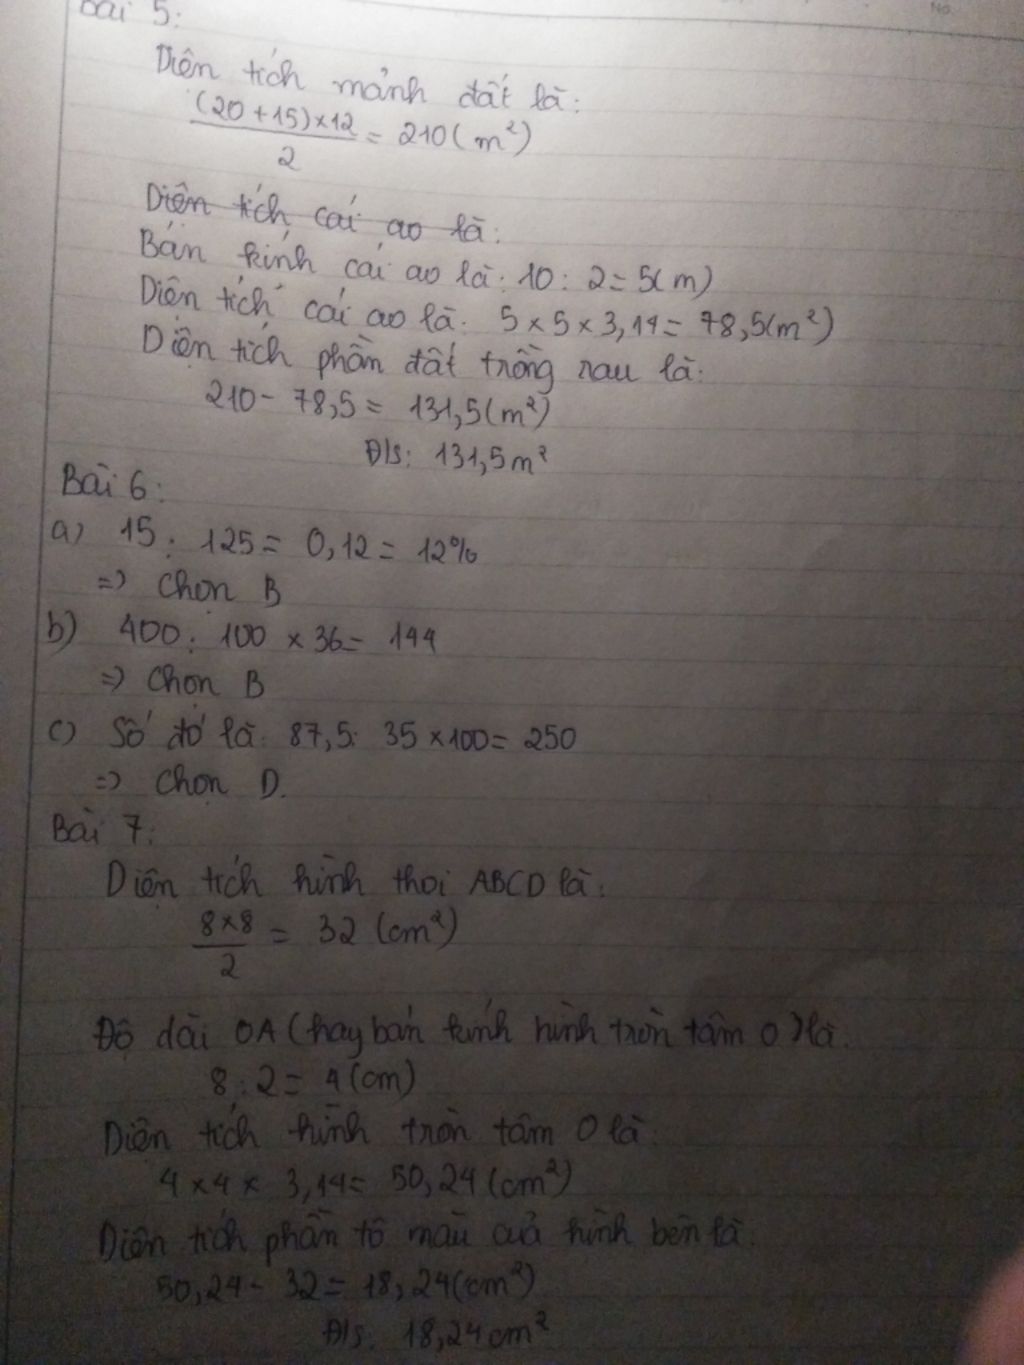 Bài 5:
Diện tích mảnh đất là:
(20 + 15) × 12 / 2 = 210 (m²)
Diện tích cái ao là:
Bán kính cái ao là: 10 : 2 = 5 (m)
Diện tích cái ao là: 5 × 5 × 3,14 = 78,5 (m²)
Diện tích phần đất trồng rau là:
210 - 78,5 = 131,5 (m²)
Đ/s: 131,5 m²
Bài 6:
a) 15 : 125 = 0,12 = 12%
=> Chọn B
b) 400 : 100 × 36 = 144
=> Chọn B
c) Số đó là: 87,5 : 35 × 100 = 250
=> Chọn D.
Bài 7:
Diện tích hình thoi ABCD là:
8 × 8 / 2 = 32 (cm²)
Độ dài OA (hay bán kính hình tròn tâm O) là:
8 : 2 = 4 (cm)
Diện tích hình tròn tâm O là:
4 × 4 × 3,14 = 50,24 (cm²)
Diện tích phần tô màu của hình bên là:
50,24 - 32 = 18,24 (cm²)
Đ/s: 18,24 cm²